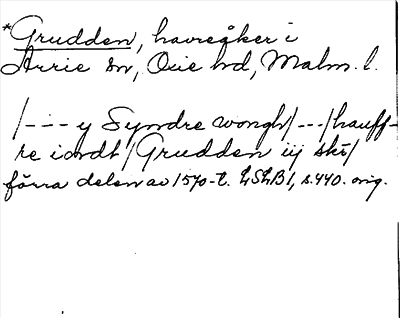 *Grudden, havreåker i
Arrie sn, Oxie hd, Malm. l.
/---y Syndre wongh/---/hauff-
re iordt/Grudden iij skr/
förra delen av 1570-t. LSLB 1, s. 440. orig.